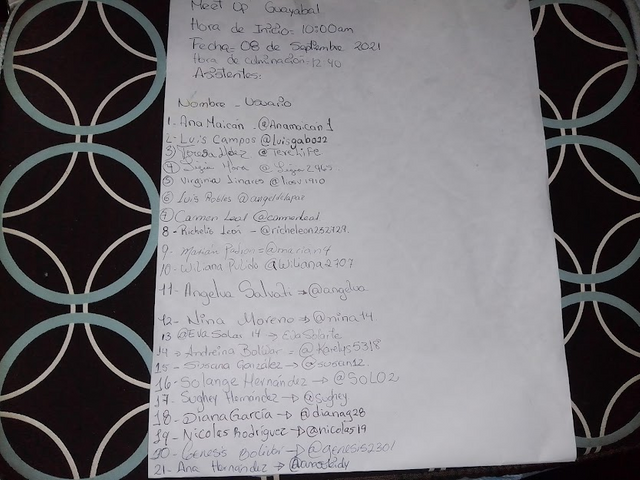 Meet Up Guayabal
Hora de Inicio: 10:00am
Fecha: 08 de Septiembre 2021
Hora de culminación: 12:40
Asistentes:
Nombre - Usuario
1- Ana Maican - @Anamaican1
2- Luis Campos @luisgabo22
3) Teresa @Terelife
4) Ligia Mora
5) Virginia Linares
6) Luis Robles @angelrlapaz
7) Carmen Leal @carmenleal
8- Richelis León - @richeleon252729
9- Marian
10- Wiliana Pulido @Wiliana2707
11- Angelua @angelua
12- Nina Moreno → @nina14
13 @EvaSolar 14 →
14 → Andreina Bolívar = @Karelys5318
15- Susana González → @susan12
16- Solange Hernández → @SOLO2
17- Sughey Hernández → @sughey
18- Diana García → @dianag28
19- Nicolas Rodríguez → @nicolas19
20- Genesis Bolívar → @genesis2301
21- Ana Hernández →